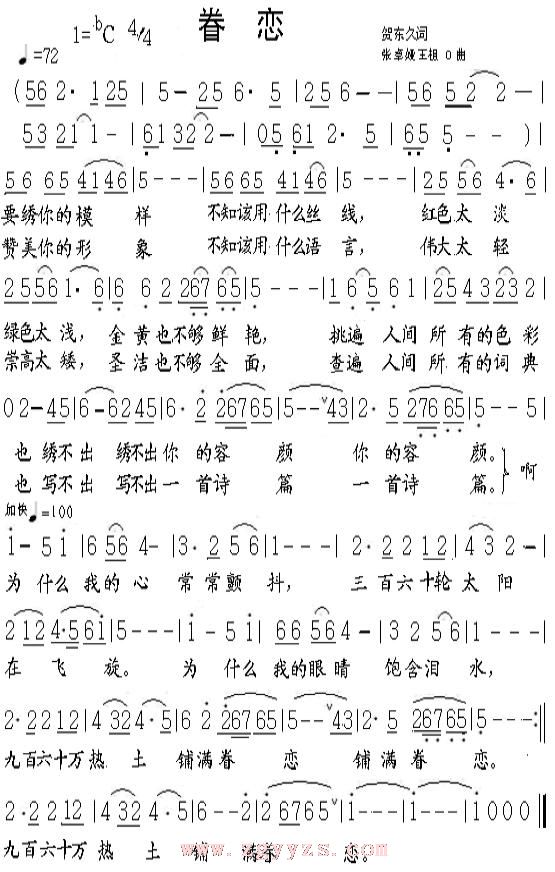 眷恋
1=ᵇC 4/4
♩=72
贺东久词
张卓娅王祖 O 曲
(56 2· 125 | 5- 256· 5 | 256- | 56 52 2 - |
53 21 1 - | 61 32 2 - | 05 61 2· 5 | 65 5 - - ) |
56 65 4146 | 5--- | 56 65 4146 | 5--- | 25 56 4·6 |
要绣你的模 样 不知该用什么丝线, 红色太 淡
赞美你的形 象 不知该用什么语言, 伟大太 轻
25 56 1·6 | 6 6 2 267 65 | 5--- | 16 5 61 | 25 43 23 2 |
绿色太浅, 金黄也不够鲜 艳, 挑遍 人间所有的色彩
崇高太矮, 圣洁也不够全 面, 查遍 人间所有的词典
02-45 | 6-6245 | 6·2 26765 | 5--ˇ43 | 2·5 27665 | 5--5 |
也绣不出 绣不出你 的容 颜 你的容 颜。
也写不出 写不出一 首诗 篇 一首诗 篇。
啊
加快♩=100
i-5i | 6 56 4- | 3·2 5 6 | 1--- | 2·2 2 12 | 4 3 2 - |
为 什么 我的心 常常颤 抖, 三百六十轮太 阳
2 12 4·56i | 5--- | i-5i | 66 56 4- | 3·3 2 56 | 1--- |
在 飞 旋。 为 什么 我的眼睛 饱含泪 水,
2·22 12 | 4 32 4·5 | 6 2·26765 | 5--ˇ43 | 2·5 26765 | 5--- :||
九百六十万热 土 铺满眷 恋 铺满眷 恋。
2·22 12 | 4 32 4·5 | 6--2 | 2 6765ˇ | i--- | i--- | i000 |
九百六十万热 土 铺 满眷 恋。